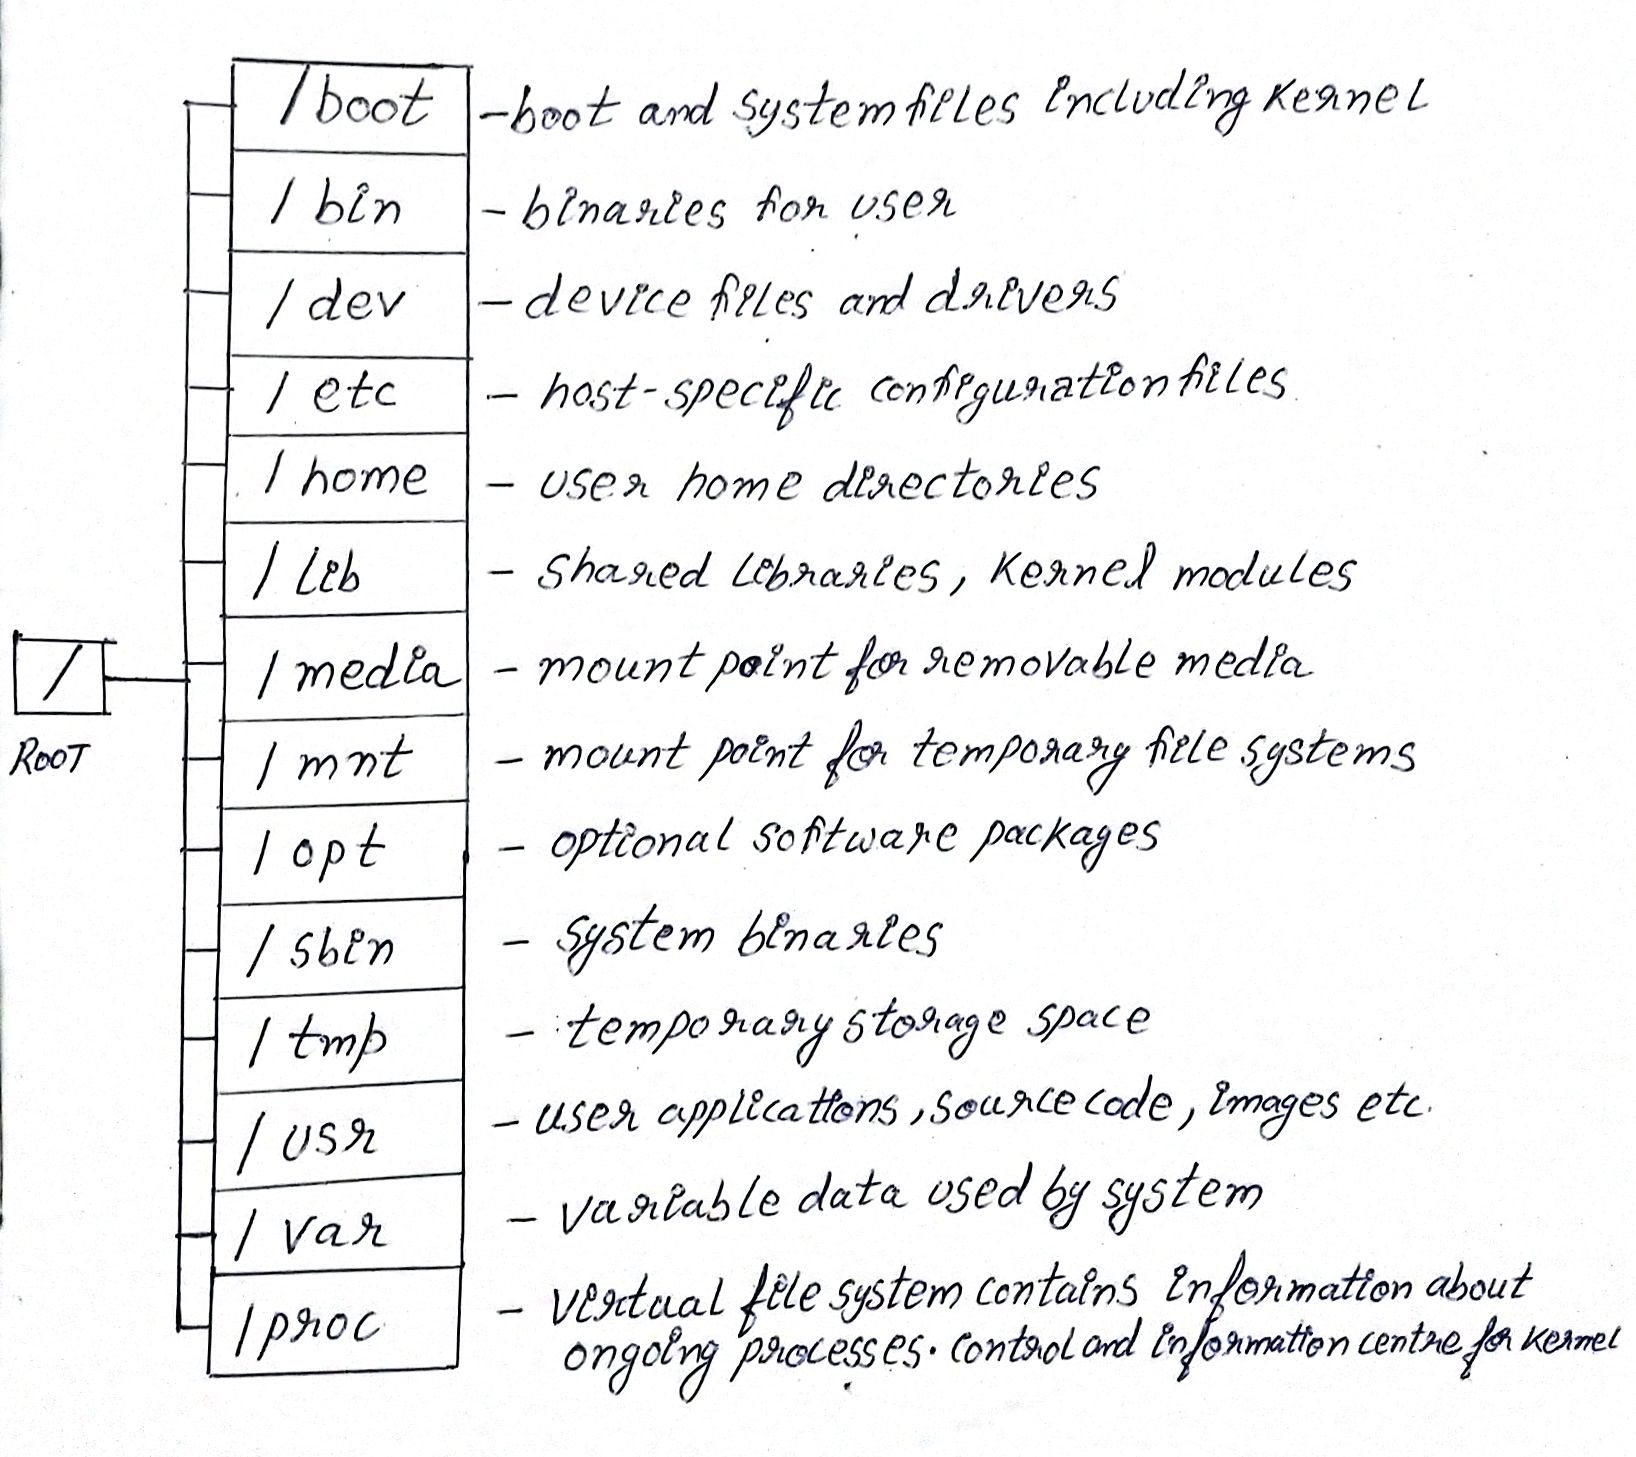 /boot - boot and system files including Kernel
/ bin - binaries for user
/ dev - device files and drivers
/ etc - host-specific configuration files
/ home - user home directories
/ lib - shared libraries, Kernel modules
/ media - mount point for removable media
/
/ mnt - mount point for temporary file systems
ROOT
/ opt - optional software packages
/ sbin - system binaries
/ tmp - temporary storage space
/ usr - user applications, source code, images etc.
/ var - variable data used by system
/proc - virtual file system contains information about
ongoing processes. control and information centre for kernel